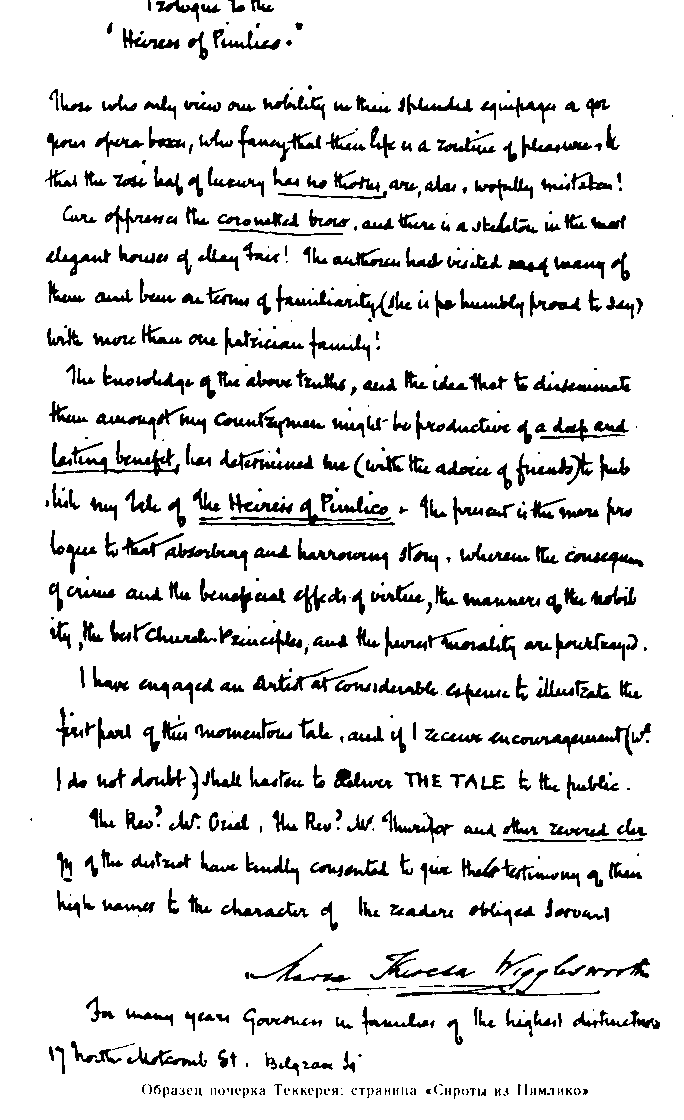 Prologue to the
"Heiress of Pimlico."
Those who only view our nobility in their splendid equipages or gor
geous opera boxes, who fancy that their life is a routine of pleasure &
that the rose leaf of luxury has no thorns, are, alas, wofully mistaken!
Care oppresses the coronetted brow, and there is a skeleton in the most
elegant houses of May Fair! The authoress had visited many of
them and been on terms of familiarity (she is humbly proud to say)
with more than one patrician family!
The knowledge of the above truths, and the idea that to disseminate
them amongst my Countrymen might be productive of a deep and
lasting benefit, has determined me (with the advice of friends) to pub
lish my Tale of The Heiress of Pimlico. The present is the mere pro
logue to that absorbing and harrowing story, wherein the consequen
of crime and the beneficial effects of virtue, the manners of the nobil
ity, the best Church-Principles, and the purest morality are pourtrayed.
I have engaged an Artist at considerable expense to illustrate the
first part of this momentous tale, and if I receive encouragement (wh.
I do not doubt) shall hasten to deliver THE TALE to the public.
The Revd. Mr. Oriel, the Revd. Mr. Thurifer and other revered cler
gy of the district have kindly consented to give the testimony of their
high names to the character of the readers obliged Servant
Maria Theresa Wigglesworth
For many years Governess in families of the highest distinction
17 North Motcomb St. Belgrave Sq
Образец почерка Теккерея: страница «Сироты из Пимлико»